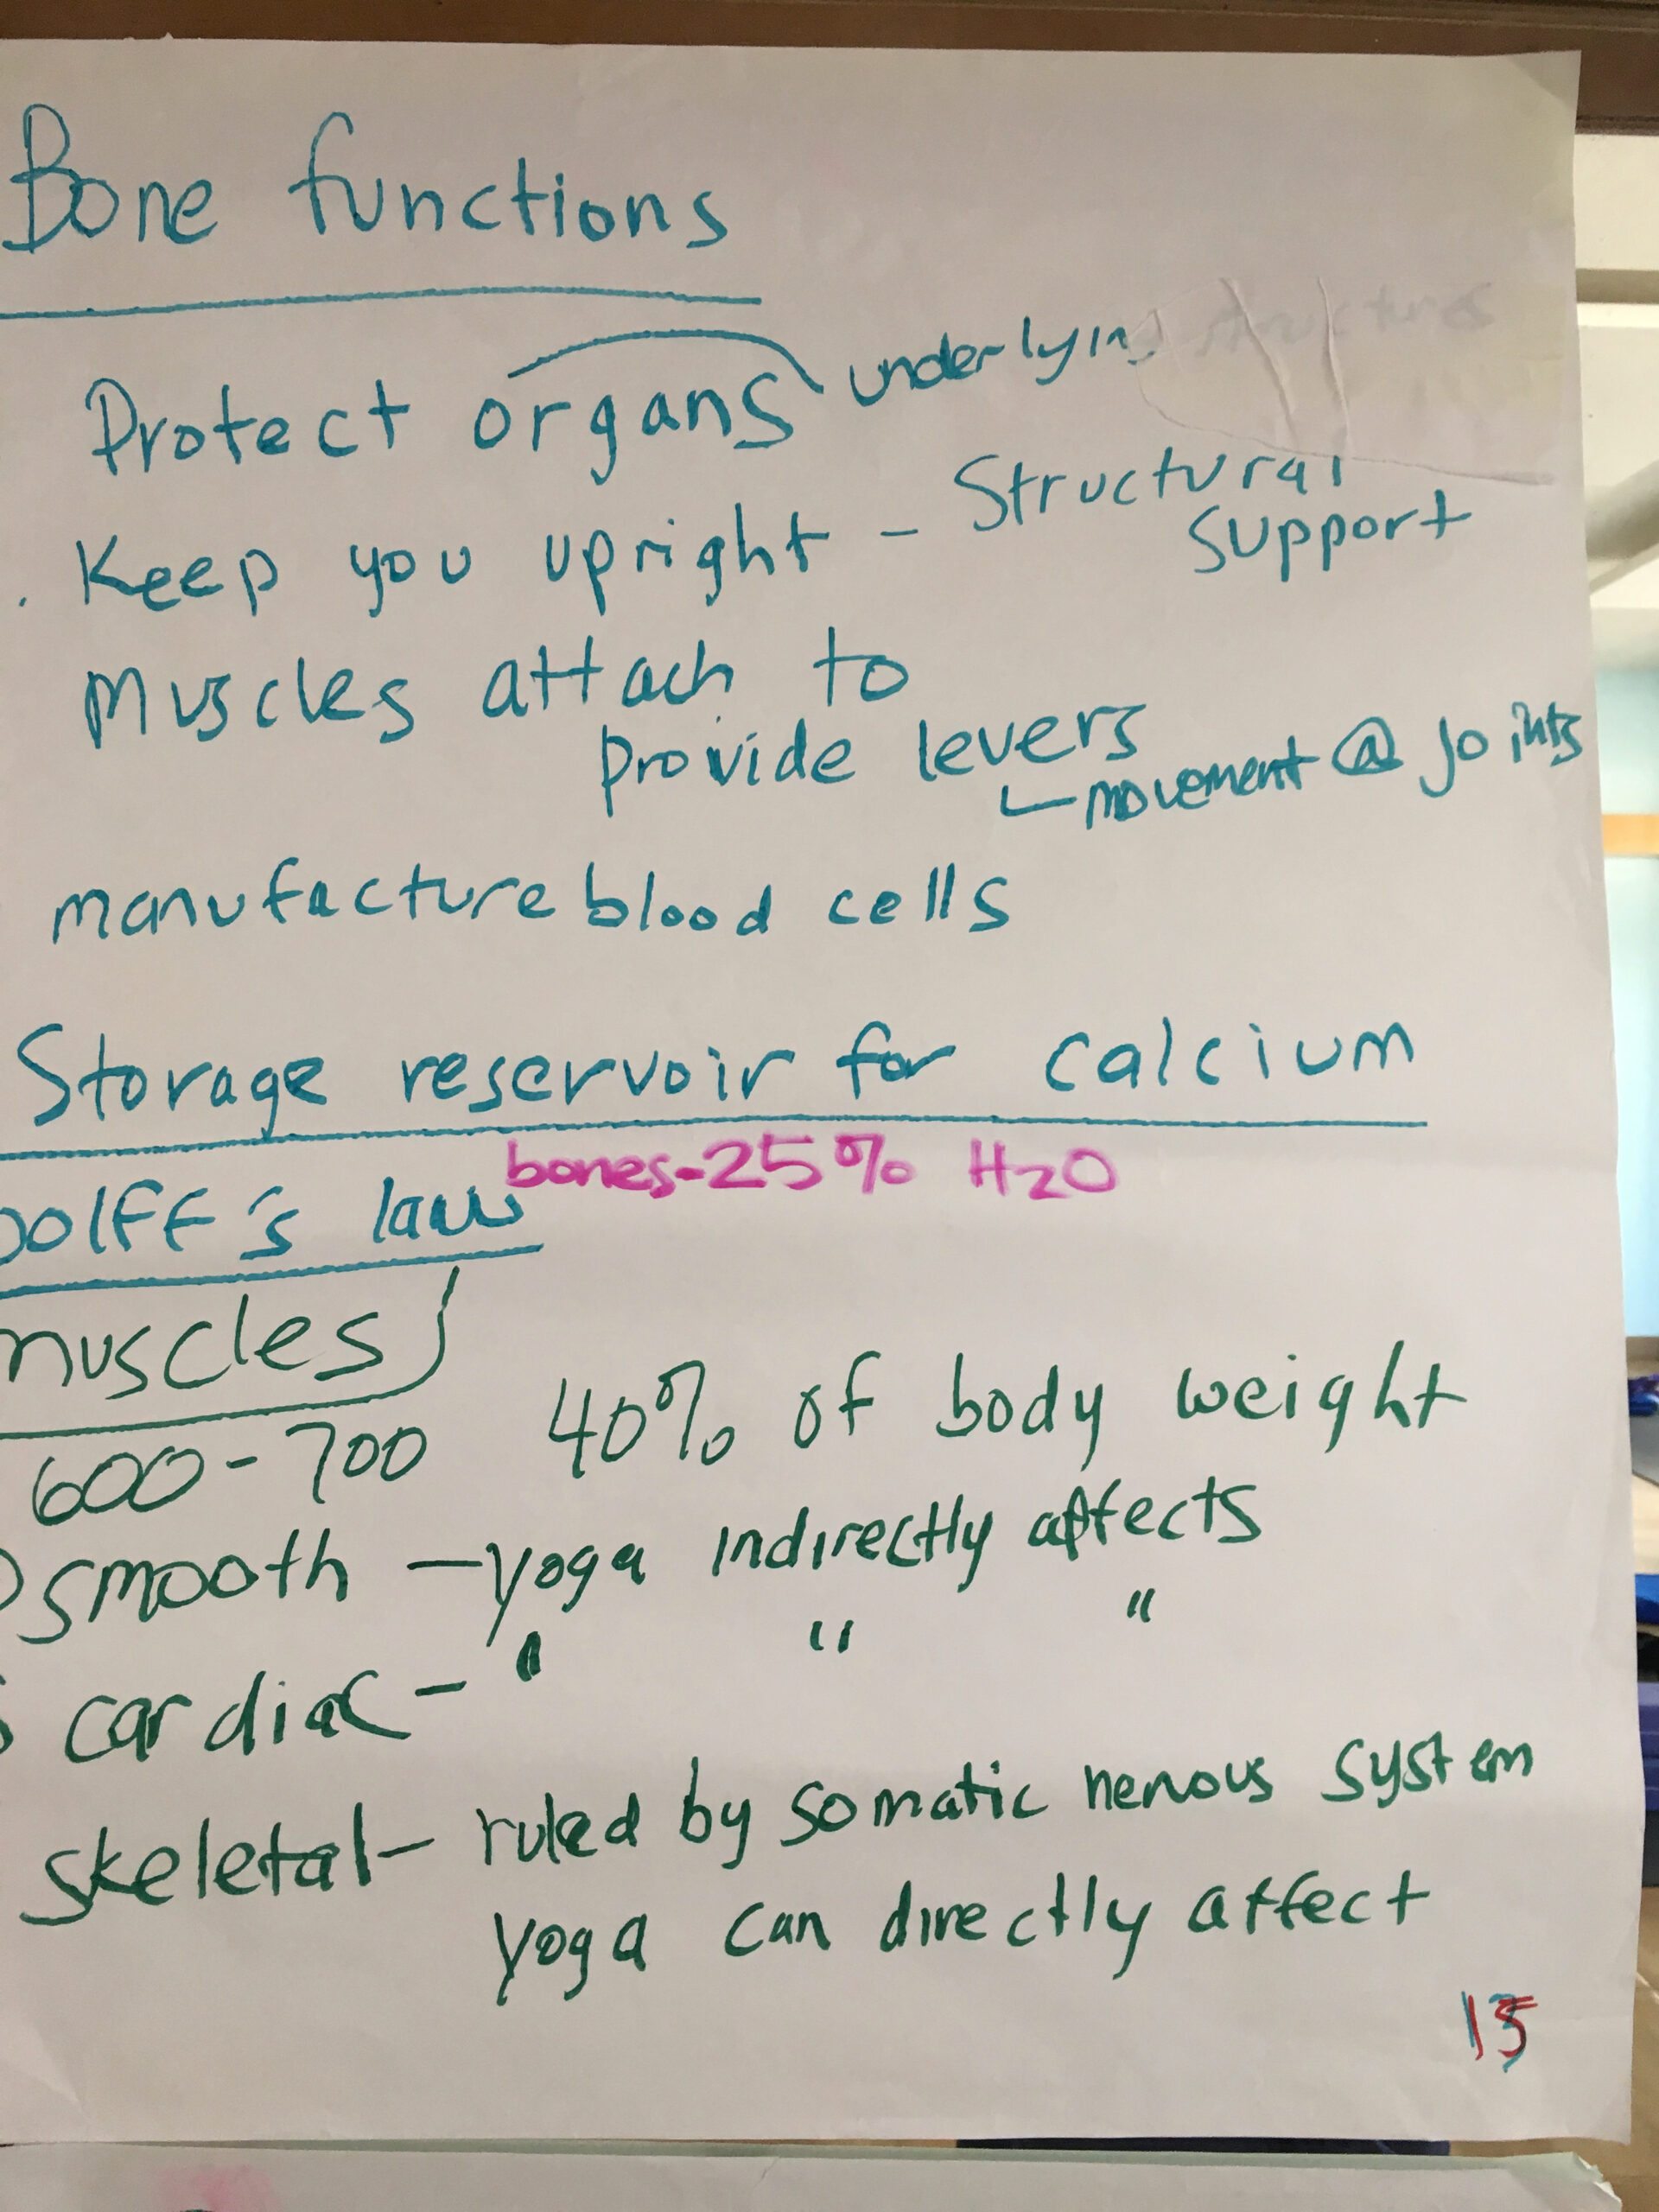 Bone functions
Protect organs underlying structures
. Keep you upright - Structural
support
Muscles attach to
provide levers
movement @ joints
manufacture blood cells
Storage reservoir for calcium
bones-25% H2O
oolff's law
muscles
600-700 40% of body weight
smooth - yoga indirectly affects
cardiac - " " "
skeletal - ruled by somatic nervous system
yoga can directly affect